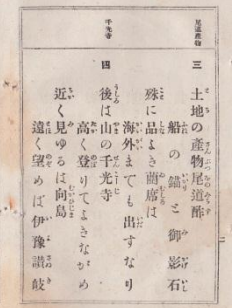 尾道產物
三 土地の產物尾道酢
船の錨と御影石
殊に品よき藺席は
海外までも出すなり
千光寺
四 後は山の千光寺
高く登りてよきながめ
近く見ゆるは向島
遠く望めば伊豫讃岐
二